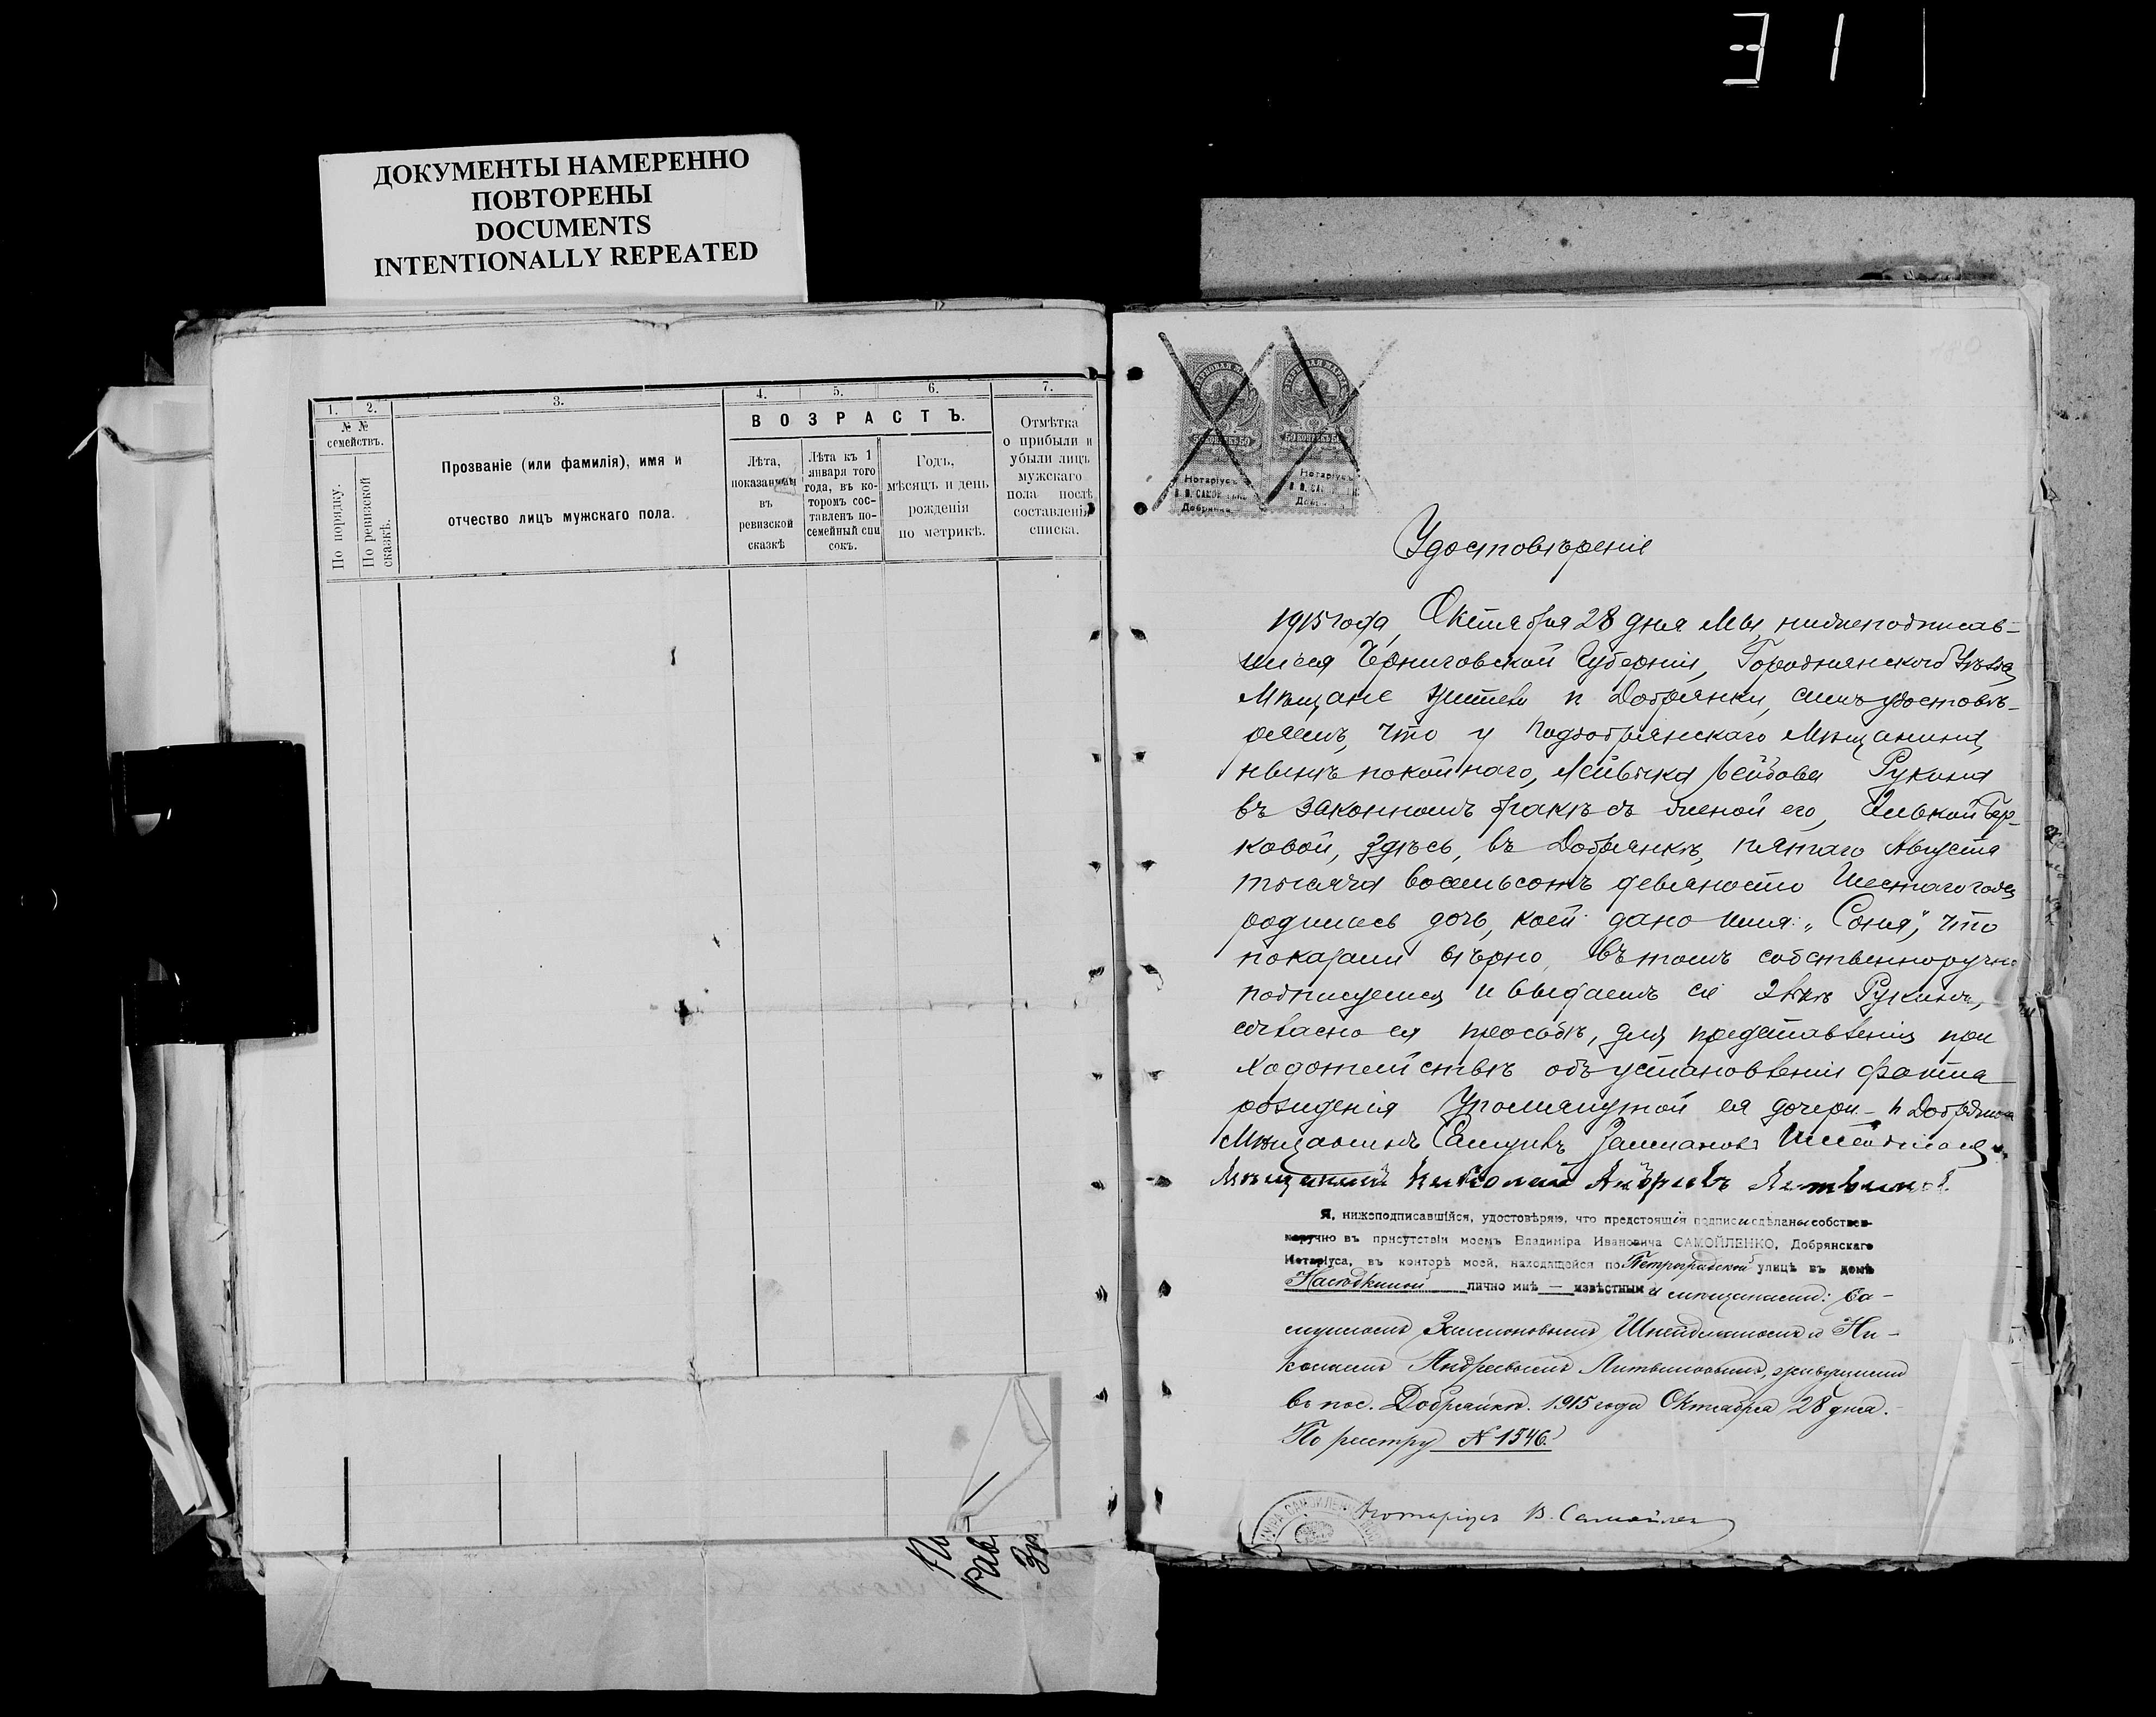 ДОКУМЕНТЫ НАМЕРЕННО
ПОВТОРЕНЫ
DOCUMENTS
INTENTIONALLY REPEATED
1. 2. 3. 4. 5. 6. 7.
№ №
семействъ.
По порядку.
По ревизской
сказкѣ.
Прозваніе (или фамилія), имя и
отчество лицъ мужскаго пола.
ВОЗРАСТЪ.
Лѣта,
показанныя
въ
ревизской
сказкѣ
Лѣта къ 1
января того
года, въ ко-
торомъ сос-
тавленъ по-
семейный спи
сокъ.
Годъ,
мѣсяцъ и день
рожденія
по метрикѣ.
Отмѣтка
о прибыли и
убыли лицъ
мужскаго
пола послѣ
составленія
списка.
50 КОПѢЕКЪ 50
50 КОПѢЕКЪ 50
Нотаріусъ
Добрянка
Нотаріусъ
Удостовѣреніе
1915 года, Октября 28 дня Мы, нижеподписав-
шіеся Черниговской Губерніи, Городнянского Уѣзда,
Мѣщане жители п Добрянки, симъ удостовѣ-
ряемъ, что у Подобрянскаго Мѣщанина,
нынѣ покойнаго, Лейбовa Рукина
въ законномъ бракѣ съ женой его, Бер-
ковой, здѣсь, въ Добрянкѣ, пятаго Августа
тысяча восемьсотъ девяносто Шестаго года
родилась дочь, коей дано имя: „Соня", что
показали вѣрно, въ томъ собственноручно
подписуемся и выдаемъ сіе Рукиной,
согласно ея просьбѣ, для представленія при
Ходотайствѣ объ установленіи факта
рожденія упомянутой ея дочери – п Добрянки
Мѣщанинъ Самуилъ Залмановъ
Мѣщанинъ Николай Андреевъ Литвиновъ
Я, нижеподписавшійся, удостовѣряю, что предстоящія подписи сдѣланы собствен-
норучно въ присутствіи моемъ Владиміра Ивановича САМОЙЛЕНКО, Добрянскаго
Нотаріуса, въ конторѣ моей, находящейся по Петроградской улицѣ въ домѣ
Насѣдкиной лично мнѣ — извѣстными мѣщанами: Са-
муиломъ Залмановымъ Шнейдманомъ и Ни-
колаемъ Андреевымъ Литвиновымъ, живущими
въ пос. Добрянкѣ. 1915 года Октября 28 дня.
По реестру № 1546.
Нотаріусъ В. Самойленко